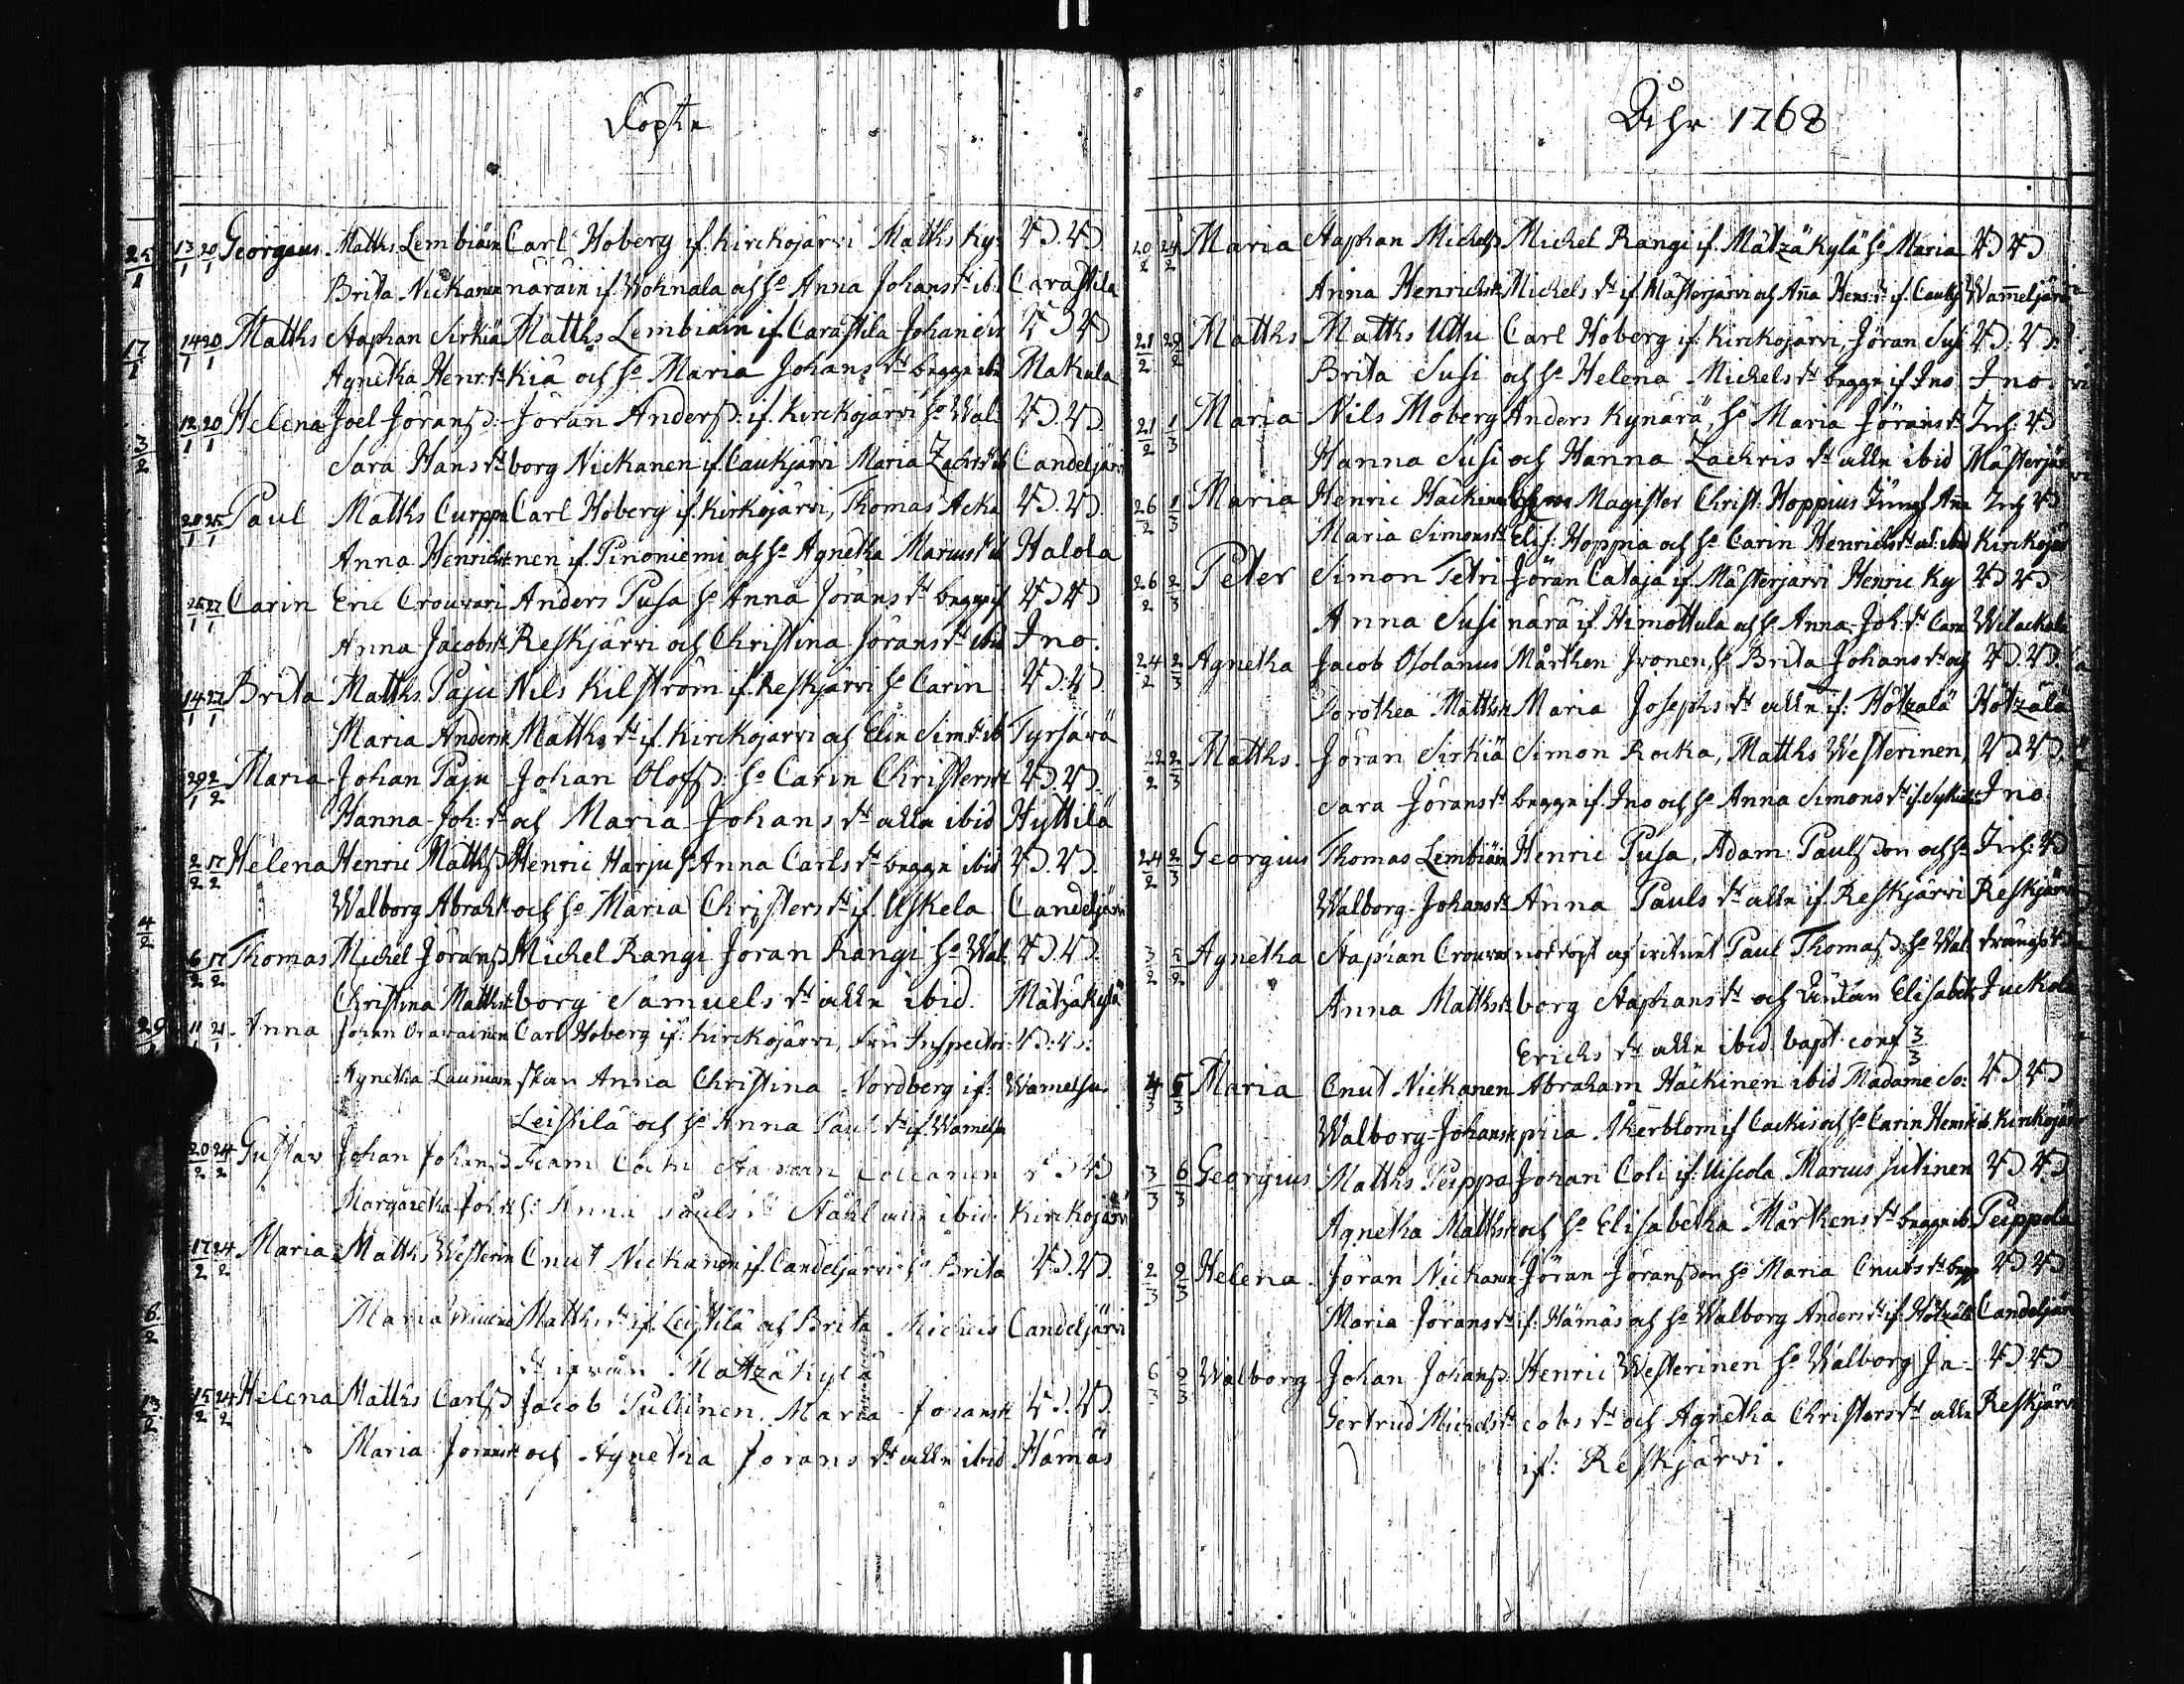 Döpta
13/1 20/1 Georgius Matths Lembiäin Carl Hoberg if. Kirckojärvi Matths Ky-
Brita Nickanen näräin if. Wohnala och h: Anna Johans dr ib: Carastila
14/1 20/1 Matths Staphan Sirkiä Matths Lembiäin if. Carastila Johan Sir
Agnetha Henr: dr kiä och h: Maria Johans dr begge ibid Makula
12/1 20/1 Helena Joel Jörans: Jöran Anders: if. Kirckojärvi h: Wal-
Sara Hans dr borg Nickanen if. Caukjärvi Maria Candeljärvi
20/1 25/1 Paul Matths Curppa Carl Hoberg if. Kirkojärvi, Thomas Acka
Anna Henrichs nen if. Pinoniemi och h: Agnetha Halola
25/1 27/1 Carin Eric Crouvari Anders Pusa h: Anna Jörans dr begge if
Anna Jacobs dr Reskjärvi och Christina Jörans dr ibid Ino.
14/1 27/1 Brita Matths Paju Nils Kilström if. Reskjärvi h: Carin
Maria Anders Matths dr if. Kirckojärvi och Elin Sim dr ib Tyrsävä
29/1 2/2 Maria Johan Paju Johan Olofs: h: Carin Christers dr
Hanna Joh: dr och Maria Johans dr alla ibid Hyttilä
2/2 17/2 Helena Henric Matths Henric Harju h: Anna Carls dr begge ibid
Walborg Abrah: dr och h: Maria Christers dr if. Uskela Candeljärvi
6/2 17/2 Thomas Michel Jörans Michel Rangi Jöran Rangi h: Wal-
Christina Matths dr borg Samuels dr alla ibid. Mätzäkylä
11/1 21/1 Anna Johan Oravainen Carl Hoberg if. Kirckojärvi, Fru Inspector-
Agnetha Laumain skan Anna Christina Nordberg if: Wamelsu
Leistilä och h: Anna Paul dr if. Wamelsu
20/2 24/2 Gustav Johan Johans
Margaretha Joh dr h: Anna Pauls dr Ståhl alla ibid. Kirckojärvi
17/2 24/2 Maria Matths Westerin Cnut Nickanen if. Candeljärvi h: Brita
Maria Matths dr if. Leistilä och Brita Michels Candeljärvi
dr ifrån Mätzäkylä
15/2 24/2 Helena Matths Carls Jacob Pullinen. Maria Johans dr
Maria Jörans dr och Agnetha Jörans dr alla ibid Hämäs
Åhr 1768
20/2 24/2 Maria Staphan Michels Michel Rangi if. Mätzäkylä h: Maria
Anna Henrichs dr Michels dr if. Mästerjärvi och Aña Hens: dr if. Wammeljärvi
21/2 29/2 Matths Matths Uttu Carl Hoberg if: Kirckojärvi, Jöran Susi
Brita Susi och h: Helena Michels dr begge if Ino Ino.
21/2 1/3 Maria Nils Moberg Anders Kynärä, h: Maria Jörans dr Inh:
Hanna Susi och Hanna Zachris dr alla ibid Mästerjär
26/2 1/3 Maria Henric Häckinen Magister Christ. Hoppius Jungf Aña Inh
Maria Simons dr Elis: Hoppia och h: Carin Henrichs dr al: ibid Kirckojär
26/2 2/3 Peter Simon Tetri Jöran Cataja if. Mästerjärvi Henric Ky
Anna Susi närä if. Himottula och h: Anna Joh: dr
24/2 2/3 Agnetha Jacob Osolanus Mårthen Ivonen, h: Brita Johans dr och
Dorothea Matths dr Maria Josephs dr alla if: Hötzälä Hötzälä
22/2 2/3 Matths. Jöran Sirkiä Simon Rocka, Matths Westerinen,
Sara Jörans dr begge if. Ino och h: Anna Simons dr if. Ino
24/2 2/3 Georgius Thomas Lembiäin Henric Pusa, Adam Paulsson och h: Inh:
Walborg Johans dr Anna Pauls dr alla if. Reskjärvi Reskjärvi
Agnetha Staphan Crouvar Paul Thomas: h: Wal-
Anna Matths dr borg Staphans dr och Elisabeth Juckola
Erichs dr alla ibid. bapt. conf 3/3
4/3 5/3 Maria Cnut Nickanen Abraham Häckinen ibid Madame So:
Walborg Johans dr phia Åkerblom if och h: Carin ib. Kirckojärv
3/3 6/3 Georgius Matths Peippa Johan Coli if. Uiscola Marcus Jutinen
Agnetha Matths dr och h: Elisabetha Mårthens dr begge ib. Peippola
2/3 9/3 Helena. Jöran Nickanen Jöran Jöransson h: Maria Cnuts dr begg
Maria Jörans dr if. Hämäs och h: Walborg Anders dr if. Hötzälä Candeljär
6/3 9/3 Walborg Johan Johans: Henric Westerinen h: Walborg Ja-
Gertrud Michels dr cobs dr och Agnetha Christers dr alla Reskjärvi
if: Reskjärvi.